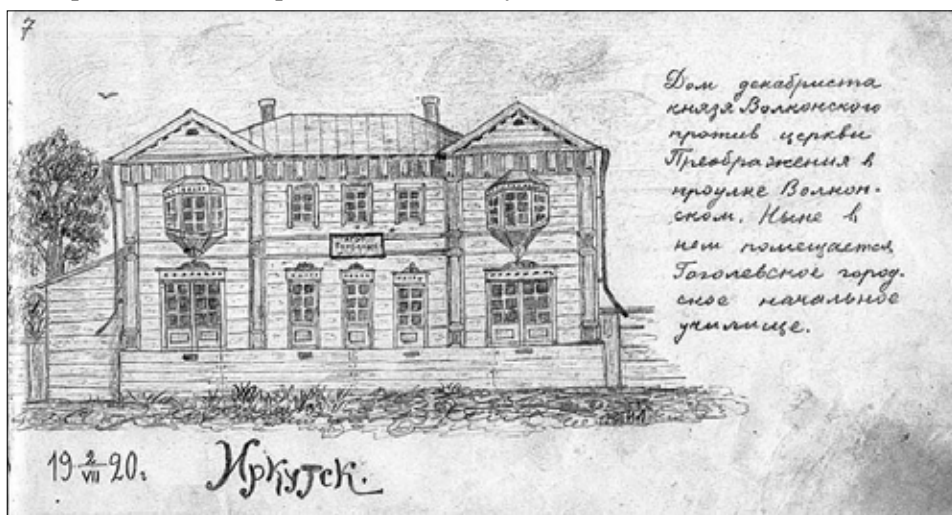 7
Дом декабриста
князя Волконского
против церкви
Преображения в
проулке Волкон-
ском. Ныне в
нем помещается
Гоголевское город-
ское начальное
училище.
19 2/VII 20 г.
Иркутск.